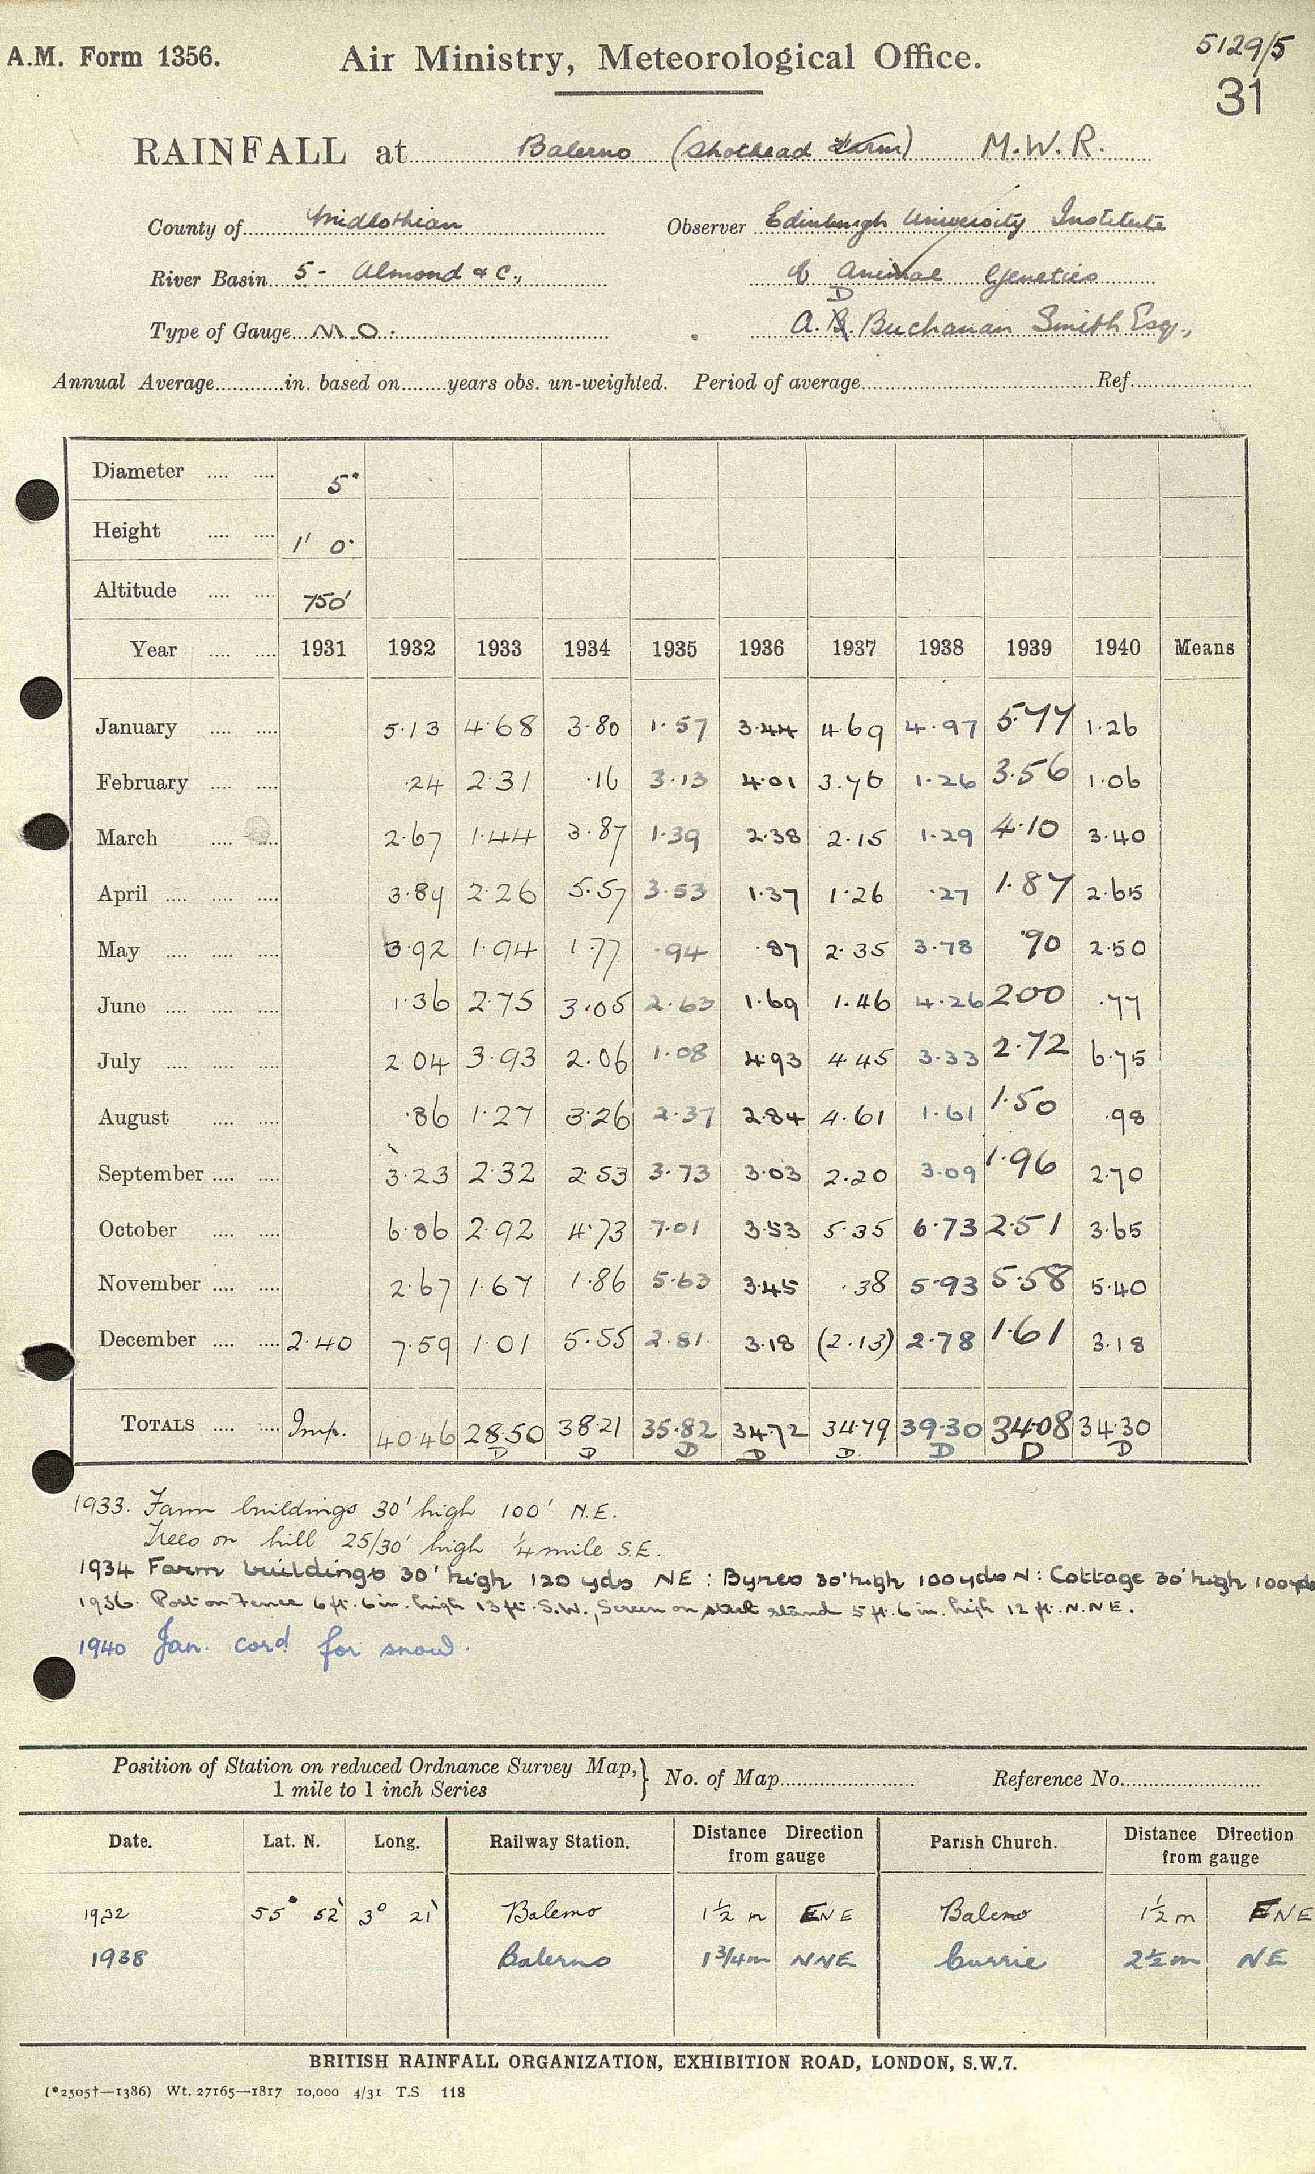 A.M. Form 1356. Air Ministry, Meteorological Office. 5129/5
31
RAINFALL at Balerno (Shothead Farm) M.W.R.
County of Midlothian Observer Edinburgh University Institute
River Basin 5 - Almond & C., of Animal Genetics
D
Type of Gauge M.O. A.B. Buchanan Smith Esq.,
Annual Average in. based on years obs. un-weighted. Period of average Ref.
Diameter 5"
Height 1' 0"
Altitude 750'
Year 1931 1932 1933 1934 1935 1936 1937 1938 1939 1940 Means
January 5.13 4.68 3.80 1.57 3.44 4.69 4.97 5.77 1.26
February .24 2.31 .16 3.13 4.01 3.76 1.26 3.56 1.06
March 2.67 1.44 3.87 1.39 2.38 2.15 1.29 4.10 3.40
April 3.89 2.26 5.57 3.53 1.37 1.26 .27 1.87 2.65
May 3.92 1.94 1.77 .94 .87 2.35 3.78 .90 2.50
June 1.36 2.75 3.05 2.63 1.69 1.46 4.26 2.00 .77
July 2.04 3.93 2.06 1.08 4.93 4.45 3.33 2.72 6.75
August .86 1.27 3.26 2.37 2.84 4.61 1.61 1.50 .98
September 3.23 2.32 2.53 3.73 3.03 2.20 3.09 1.96 2.70
October 6.86 2.92 4.73 7.01 3.53 5.35 6.73 2.51 3.65
November 2.67 1.67 1.86 5.63 3.45 .38 5.93 5.58 5.40
December 2.40 7.59 1.01 5.55 2.81 3.18 (2.13) 2.78 1.61 3.18
TOTALS Imp. 40.46 28.50 38.21 35.82 34.72 34.79 39.30 34.08 34.30
D D D D D D D D
1933. Farm buildings 30' high 100' N.E.
Trees on hill 25/30' high 1/4 mile S.E.
1934 Farm buildings 30' high 120 yds NE : Byres 30' high 100 yds N : Cottage 30' high 100 yds
1936. Post on Fence 6 ft. 6 in. high 13 ft. S.W., Screen on steel stand 5 ft. 6 in. high 12 ft. N.NE.
1940 Jan. cord for snow.
Position of Station on reduced Ordnance Survey Map, 1 mile to 1 inch Series } No. of Map Reference No.
Date. Lat. N. Long. Railway Station. Distance Direction from gauge Parish Church. Distance Direction from gauge
1932 55° 52' 3° 21' Balerno 1½ m ENE Balerno 1½ m ENE
1938 Balerno 1¾ m NNE Currie 2½ m NE
BRITISH RAINFALL ORGANIZATION, EXHIBITION ROAD, LONDON, S.W.7.
(*2505†—1386) Wt. 27165—1817 10,000 4/31 T.S 118